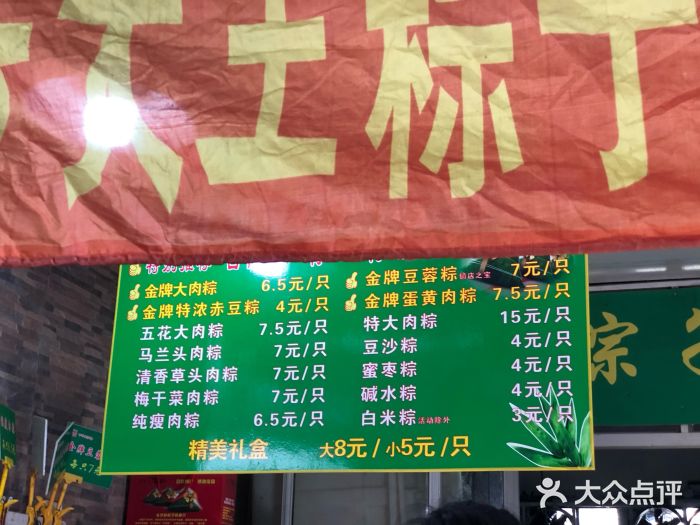 灶标
金牌大肉粽 6.5元/只
金牌特浓赤豆粽 4元/只
五花大肉粽 7.5元/只
马兰头肉粽 7元/只
清香草头肉粽 7元/只
梅干菜肉粽 7元/只
纯瘦肉粽 6.5元/只
金牌豆蓉粽镇店之宝 7元/只
金牌蛋黄肉粽 7.5元/只
特大肉粽 15元/只
豆沙粽 4元/只
蜜枣粽 4元/只
碱水粽 4元/只
白米粽活动除外 3元/只
精美礼盒 大8元/小5元/只
粽
大众点评